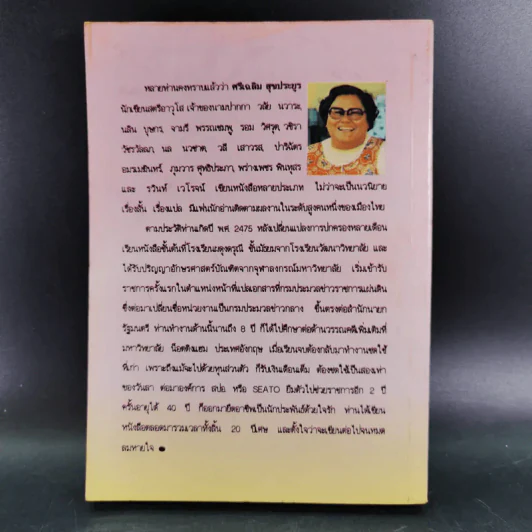 หลายท่านคงทราบแล้วว่า ศรีเฉลิม สุขประยูร
นักเขียนสตรีอาวุโส เจ้าของนามปากกา วลัย นวาระ,
นลิน บุษกร, จามรี พรรณชมพู, รอม วิศวุต, วชิรา
วัชรวัลลภ, นล นวชาต, วลี เสาวรส, ปาริฉัตร
และ รวินท์ เวโรจน์ เขียนหนังสือหลายประเภท ไม่ว่าจะเป็นนวนิยาย
เรื่องสั้น เรื่องแปล มีแฟนนักอ่านติดตามผลงานในระดับสูงคนหนึ่งของเมืองไทย
ตามประวัติท่านเกิดปี พ.ศ. 2475 หลังเปลี่ยนแปลงการปกครองหลายเดือน
เรียนหนังสือชั้นต้นที่โรงเรียนผดุงดรุณี ชั้นมัธยมจากโรงเรียนวัฒนาวิทยาลัย และ
ได้รับปริญญาอักษรศาสตร์บัณฑิตจากจุฬาลงกรณ์มหาวิทยาลัย เริ่มเข้ารับ
ราชการครั้งแรกในตำแหน่งหน้าที่แปลเอกสารที่กรมประมวลข่าวราชการแผ่นดิน
ซึ่งต่อมาเปลี่ยนชื่อหน่วยงานเป็นกรมประมวลข่าวกลาง ขึ้นตรงต่อสำนักนายก
รัฐมนตรี ท่านทำงานด้านนี้นานถึง 8 ปี ก็ได้ไปศึกษาต่อด้านวรรณคดีเพิ่มเติมที่
มหาวิทยาลัย น็อตติงแฮม ประเทศอังกฤษ เมื่อเรียนจบต้องกลับมาทำงานชดใช้
ที่เก่า เพราะถึงแม้จะไปด้วยทุนส่วนตัว ก็รับเงินเดือนเต็ม ต้องชดใช้เป็นสองเท่า
ของวันลา ต่อมาองค์การ สปอ หรือ SEATO ยืมตัวไปช่วยราชการอีก 2 ปี
ครั้นอายุได้ 40 ปี ก็ออกมายึดอาชีพเป็นนักประพันธ์ด้วยใจรัก ท่านได้เขียน
หนังสือตลอดมารวมเวลาทั้งสิ้น 20 ปีเศษ และตั้งใจว่าจะเขียนต่อไปจนหมด
ลมหายใจ